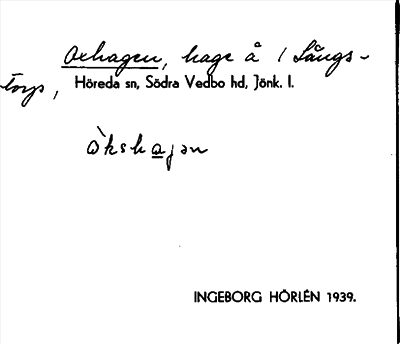 Oxhagen, hage å 1 Långs-
torp,
Höreda sn, Södra Vedbo hd, Jönk. l.
òkshagən
INGEBORG HÖRLÉN 1939.